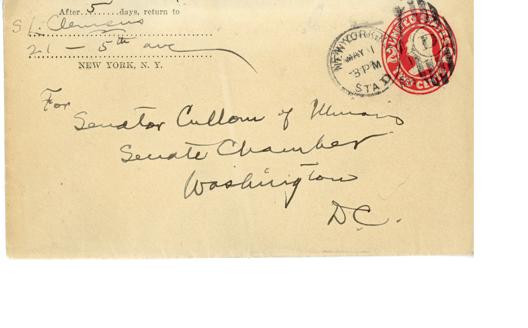 After 5 days, return to
S L. Clemens
21 - 5th ave
NEW YORK, N. Y.
NEW YORK
MAY 1
8 PM
STA. D
For
Senator Cullom of Illinois
Senate Chamber
Washington
D.C.